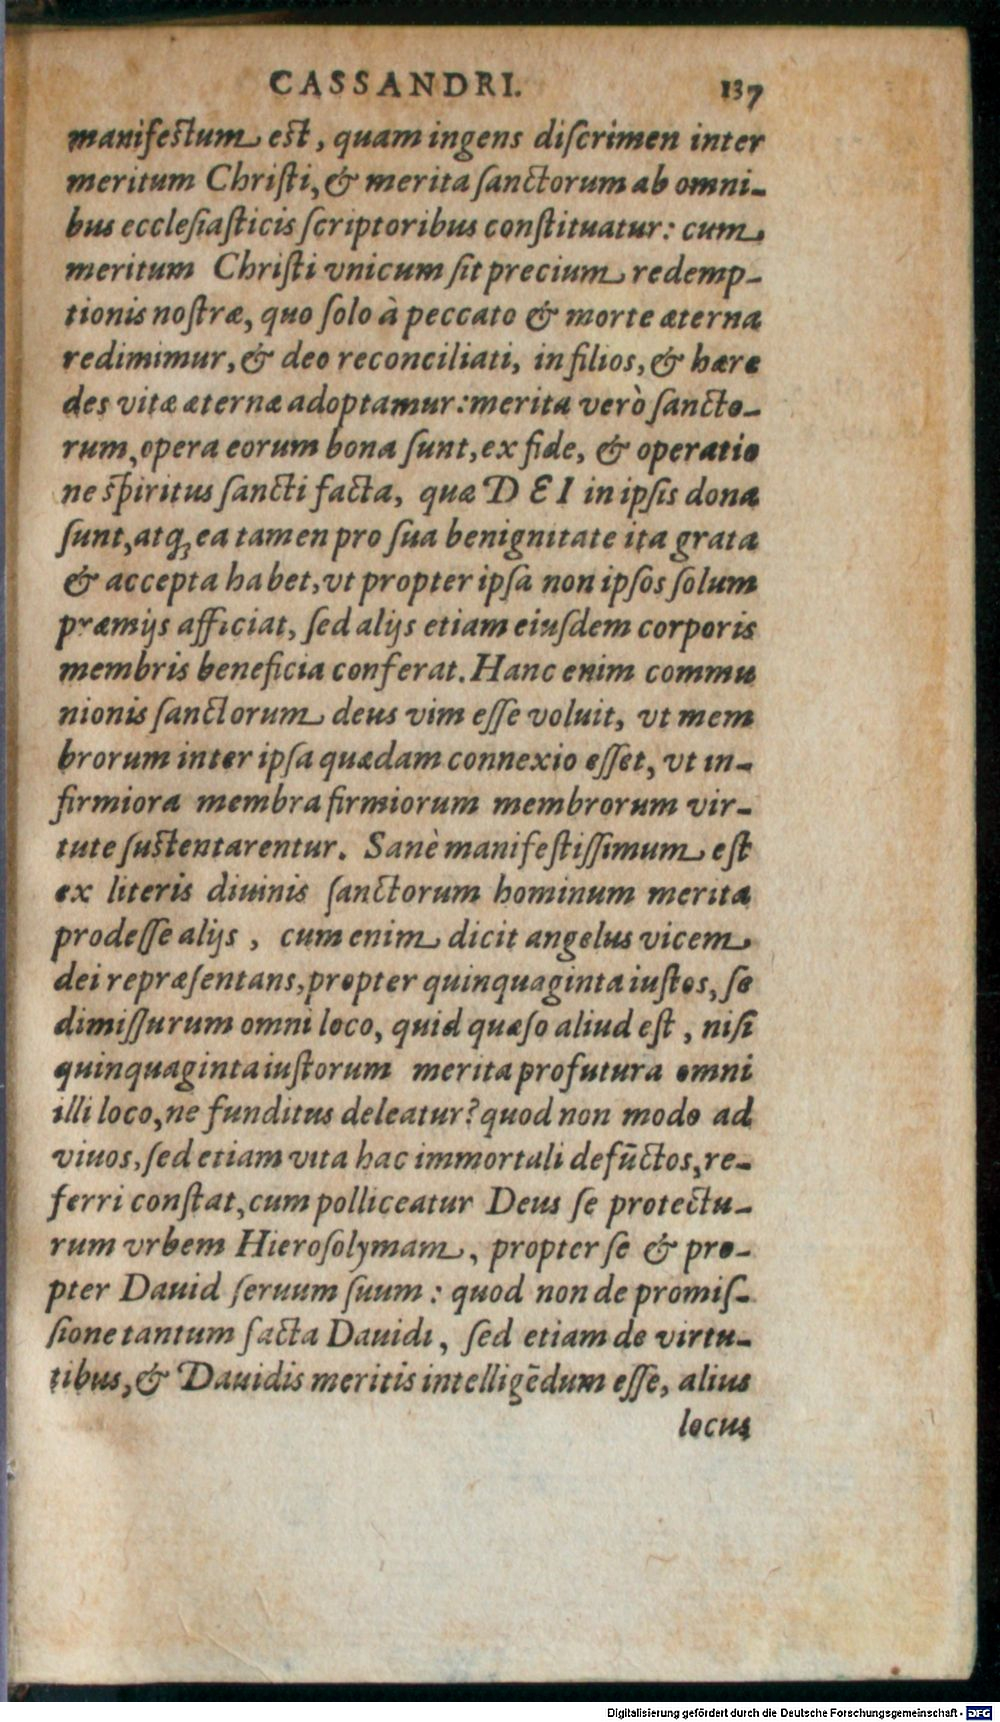 CASSANDRI. 137
manifestum est, quam ingens discrimen inter
meritum Christi, & merita sanctorum ab omni-
bus ecclesiasticis scriptoribus constituatur: cum
meritum Christi vnicum sit precium redemp-
tionis nostræ, quo solo à peccato & morte æterna
redimimur, & deo reconciliati, in filios, & hære
des vitæ æternæ adoptamur: merita verò sancto-
rum, opera eorum bona sunt, ex fide, & operatio
ne spiritus sancti facta, quæ DEI in ipsis dona
sunt, atq; ea tamen pro sua benignitate ita grata
& accepta habet, vt propter ipsa non ipsos solum
præmijs afficiat, sed alijs etiam eiusdem corporis
membris beneficia conferat. Hanc enim commu
nionis sanctorum deus vim esse voluit, vt mem
brorum inter ipsa quædam connexio esset, vt in-
firmiora membra firmiorum membrorum vir-
tute sustentarentur. Sanè manifestissimum est
ex literis diuinis sanctorum hominum merita
prodesse alijs, cum enim dicit angelus vicem
dei repræsentans, propter quinquaginta iustos, se
dimissurum omni loco, quid quæso aliud est, nisi
quinquaginta iustorum merita profutura omni
illi loco, ne funditus deleatur? quod non modo ad
viuos, sed etiam vita hac immortali defūctos, re-
ferri constat, cum polliceatur Deus se protectu-
rum vrbem Hierosolymam, propter se & pro-
pter Dauid seruum suum: quod non de promis-
sione tantum facta Dauidi, sed etiam de virtu-
tibus, & Dauidis meritis intelligēdum esse, alius
locus
Digitalisierung gefördert durch die Deutsche Forschungsgemeinschaft - DFG